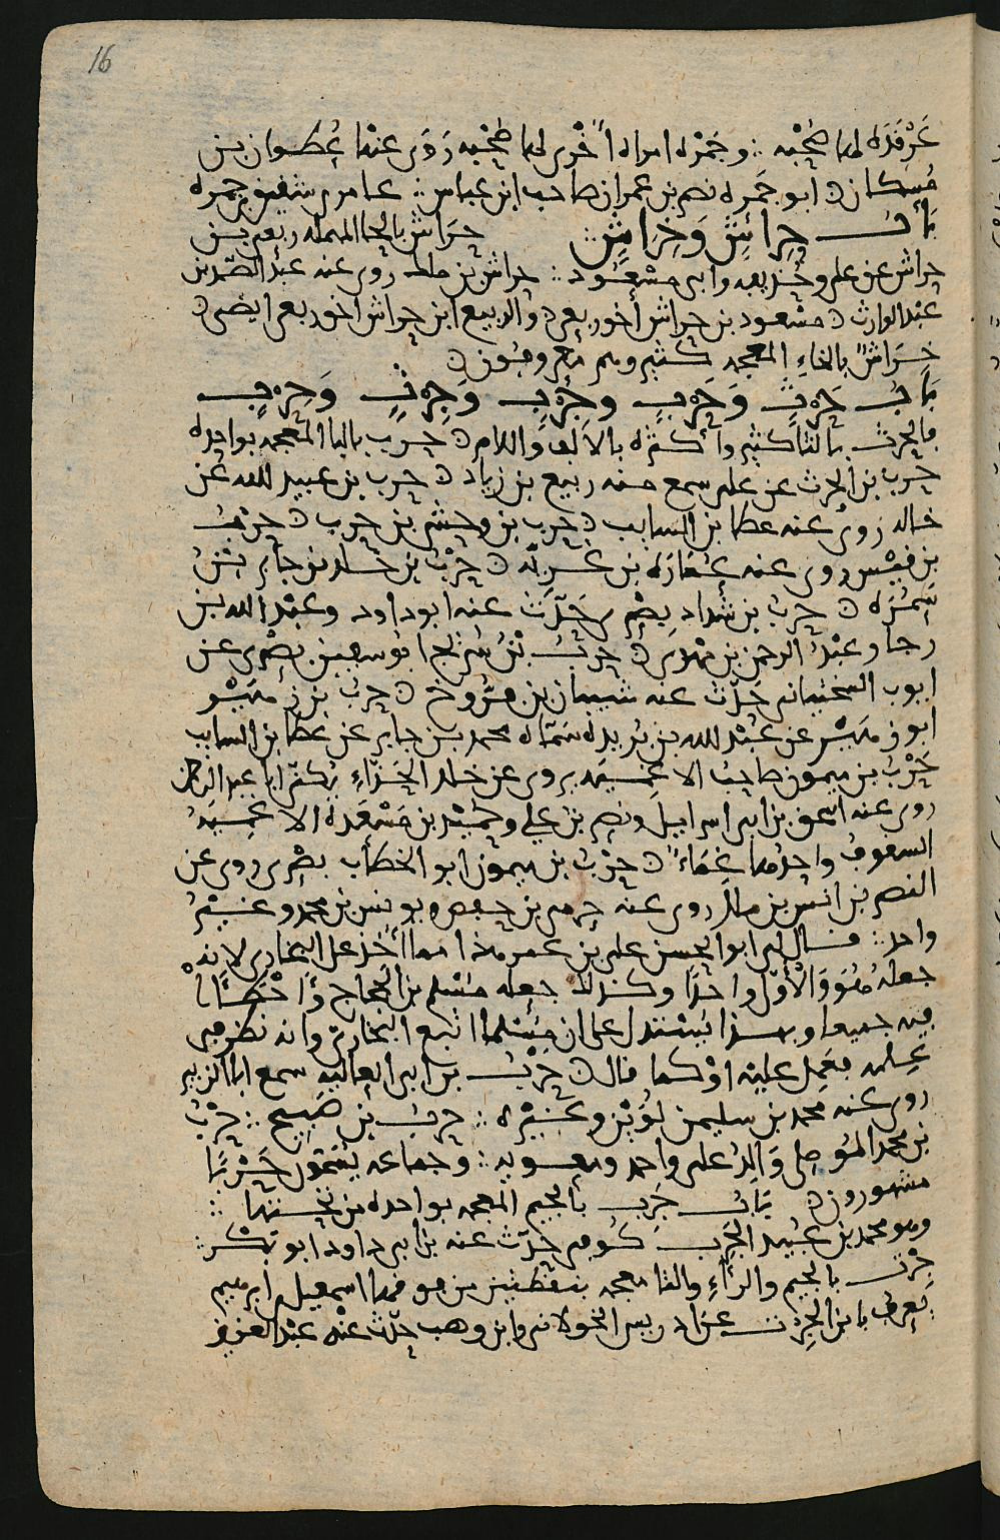 16
غرقده لها صحبه ∴ وجمره امراه اخرى لها صحبه روى عنها عطوان بن
مسكان ○ ابو جمره نصر بن عمران صاحب ابن عباس ∴ عامر بن شقيق بن جمره
باب حِراشٍ وَخِرَاشٍ ∴ حِرَاش بالحا المهمله ربعي بن
حراش عن علي وحذيفه وابي مسعود ∴ حراش بن ملك روى عنه عبد الصمد بن
عبد الوارث ○ مسعود بن حراش أخو ربعي ○ والربيع ابن حراش اخو ربعي ايضى ○
خِرَاشٌ بالخاءِ المعجمه كثير وهم معروفون ○
بَابُ حَرْثٍ وَحَرْبٍ وجَرْبٍ وَحِرْثٍ وَجِرْبٍ
فالحرث بالثا كثير وأكثره بالالف واللام ○ حرب بالبا المعجمه بواحده
حرب بن الحرث عن علي سمع منه ربيع بن زياد ○ حرب بن عبيد الله عن
خاله روى عنه عطا بن السايب ○ حرب بن وحشي بن حرب ○ حرب
بن قيس روى عنه عماره بن غزيه ○ حَرْبُ بن خلد بن جابر بن
سَمُرَه ○ حربُ بن شداد بصري حَدّث عنه ابو داود وعبْد الله بن
رجا وعبْدُ الرحمن بن مهدي ○ حربُ بنُ سُريج ابو سفين بصْري عن
ايوب السختياني حَدّث عنه شيبان بن فرُّوخ ○ حربُ بن زهير
ابو زهير عن عبْد الله بن بُريده سَمّاه محمد بن جابر عن عطا بن السايب
حَرْبُ بن ميمون صاحبُ الاغميه يروي عن خلد الحَذّاءِ يُكنّى ابا عبد الرحمن
روى عنه اسحق بن ابي اسرايل ونصر بن علي وحُميْد بن مَسْعَدة الاغميه
السقوف واحدها غِمَاءٌ ○ حرْبُ بن ميمون ابو الخطاب بصْري روى عن
النضر بن انس بن ملك روى عنه حرمي بن حفص ويونس بن محمد وغيرُ
واحد ∴ قال لي ابو الحسن علي بن عمر هذا مما أُخذ على البخاري لانهُ
جعلهُ هُوَ وَالْأوّل واحدًا وكذلك جعله مُسْلم بن الحجاج وَاخْطَيَا
فيه جميعا وبهذا يُستدل على ان مُسْلما اتبع البخاري وانه نظر في
عِلمه فعَمِل عليه اوْ كما قال ○ حرْبُ بن ابي العاليه سمع ابا الزبير
روى عنه محمد بن سليمن لُوَيْن وغَيْره ∴ حربُ بن صبيح ∴ حرْبُ
بن محمد المَوصلي وَالِدُ علي واحمد ومعويه ∴ وجماعه يسمّوْن حَرْبًا
مشهورون ○ بابُ جَرَب بالجيم المعجمه بواحده من تحتها ∴
وهو محمد بن عُبيد الجَرَب كُوفي حَدّث عنه بن ابي داود ابو بكر ∴
جِرْث بالجيم والراءِ والثا معجمه بنقطتين من فوقها اسمعيل بن ابرهيم
يُعرف بابن الجِرْت عن ادريس الخولاني وابن وهب حَدّث عنه عبْد العزيز